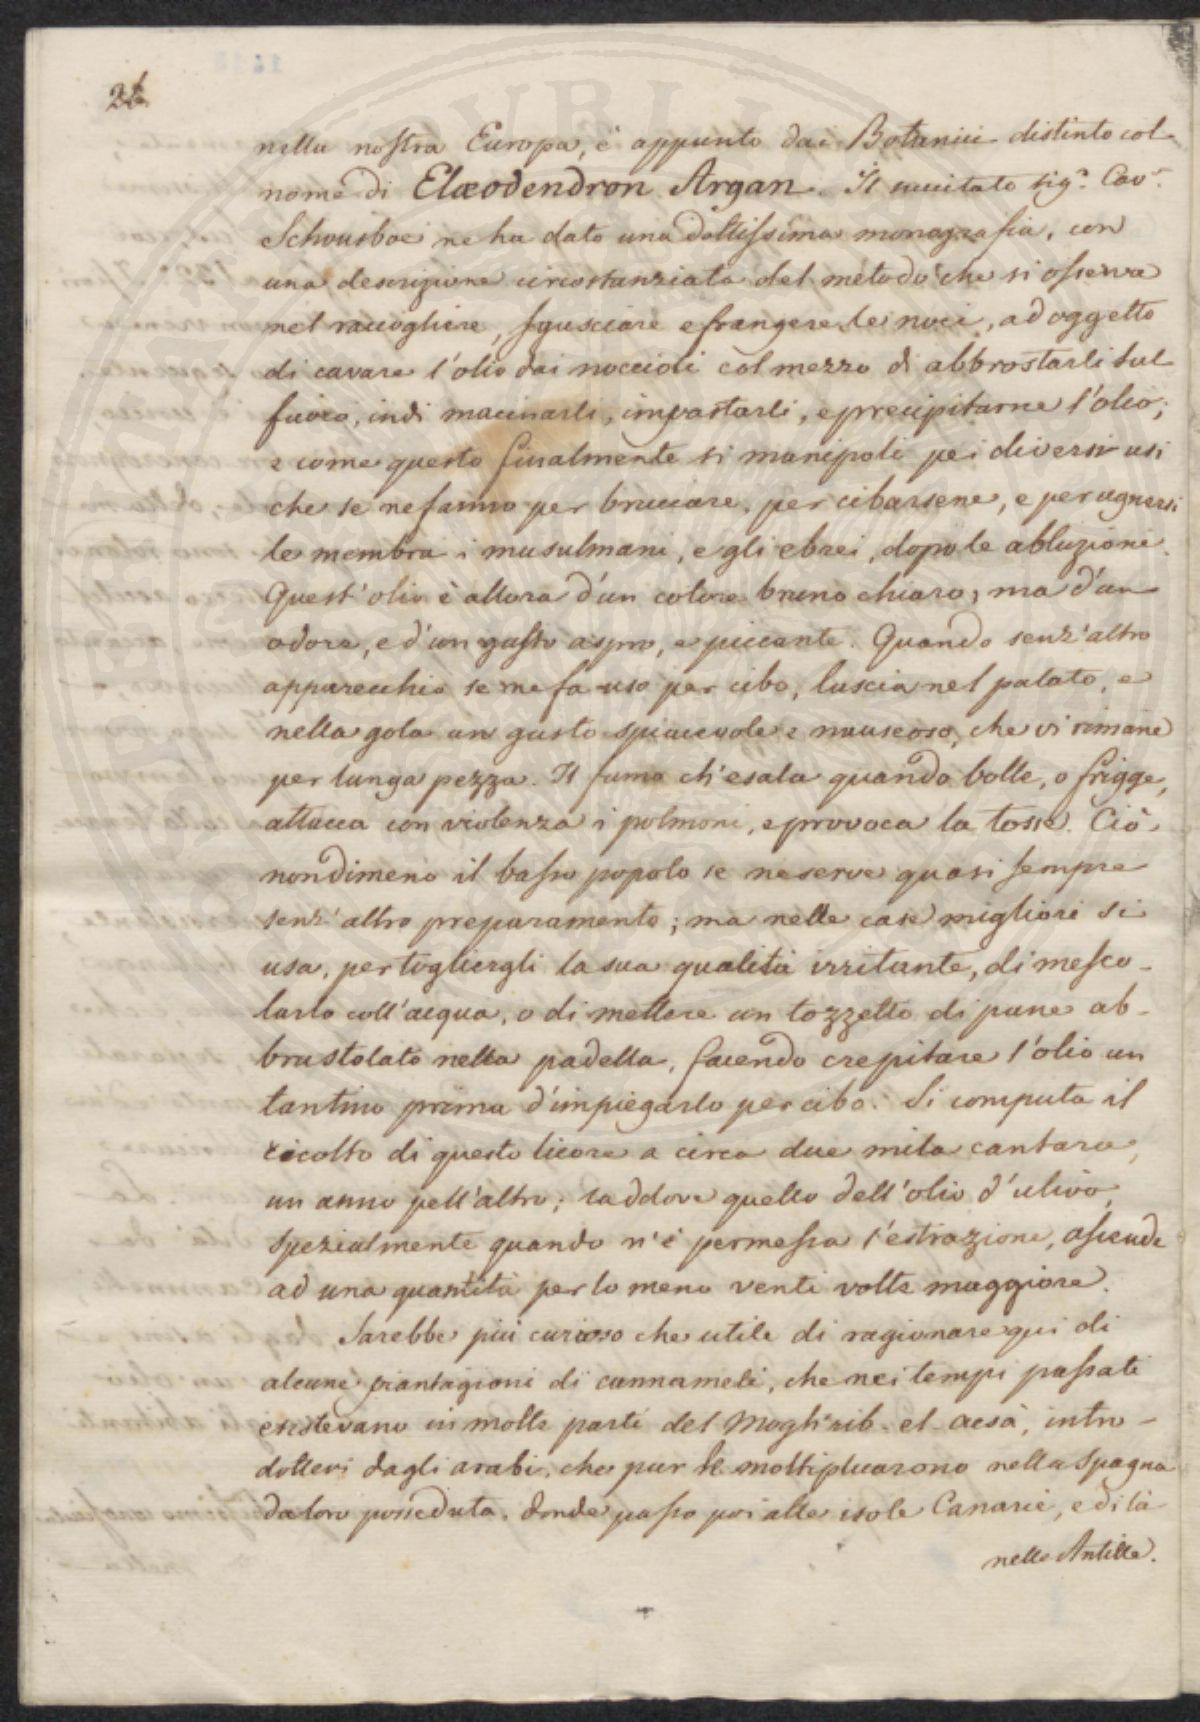 nella nostra Europa, è appunto dai Botanici distinto col
nome di Elæodendron Argan. Il succitato sigr. Cavr.
Schousboe ne ha dato una dottissima monografia, con
una descrizione circostanziata del metodo che si osserva
nel raccogliere, sgusciare e frangere le noci, ad oggetto
di cavare l'olio dai noccioli col mezzo di abbrostarli sul
fuoco, indi macinarli, impastarli, e precipitarne l'olio;
e come questo finalmente si manipoli pei diversi usi
che se ne fanno per bruciare, per cibarsene, e per ugnersi
le membra i musulmani, e gli ebrei, dopo le abluzioni.
Quest'olio è allora d'un colore bruno chiaro, ma d'un
odore, e d'un gusto aspro, e piccante. Quando senz'altro
apparecchio se ne fa uso per cibo, lascia nel palato, e
nella gola un gusto spiacevole e nauseoso, che vi rimane
per lunga pezza. Il fumo ch'esala quando bolle, o frigge,
attacca con violenza i polmoni, e provoca la tosse. Ciò
nondimeno il basso popolo se ne serve quasi sempre
senz'altro preparamento; ma nelle case migliori si
usa, per togliergli la sua qualità irritante, di mesco-
larlo coll'acqua, o di mettere un tozzetto di pane ab-
brustolato nella padella, facendo crepitare l'olio un
tantino prima d'impiegarlo per cibo. Si computa il
ricolto di questo licore a circa due mila cantara,
un anno pell'altro; laddove quello dell'olio d'ulivo,
spezialmente quando n'è permessa l'estrazione, ascende
ad una quantità per lo meno venti volte maggiore.
Sarebbe più curioso che utile di ragionare qui di
alcune piantagioni di cannameli, che nei tempi passati
esistevano in molte parti del Mogh'rib-el-acsà, intro-
dottevi dagli arabi, che pur le moltiplicarono nella Spagna
da loro posseduta, donde passò poi alle isole Canarie, e di là
nelle Antille.